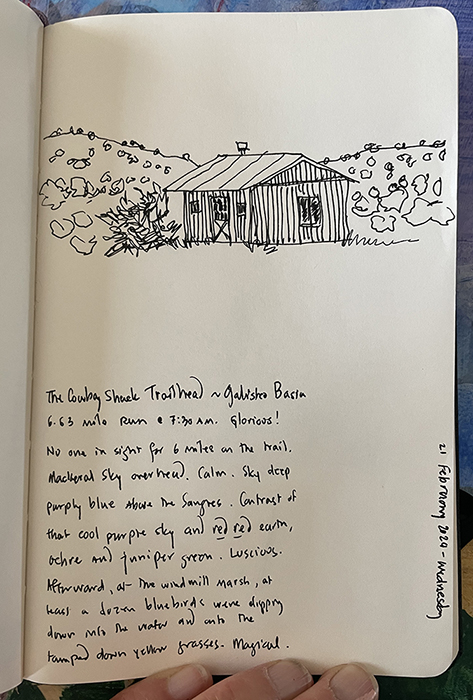 The Cowboy Shack Trailhead ~ Galisteo Basin
6.63 mile run @ 7:30 AM. Glorious!
No one in sight for 6 miles on the trail.
Mackeral sky overhead. Calm. Sky deep
purply blue above the Sangres. Contrast of
that cool purple sky and red red earth,
ochre and juniper green. Luscious.
Afterward, at the windmill marsh, at
least a dozen bluebirds were dipping
down into the water and onto the
tamped down yellow grasses. Magical.
21 February 2024 - Wednesday